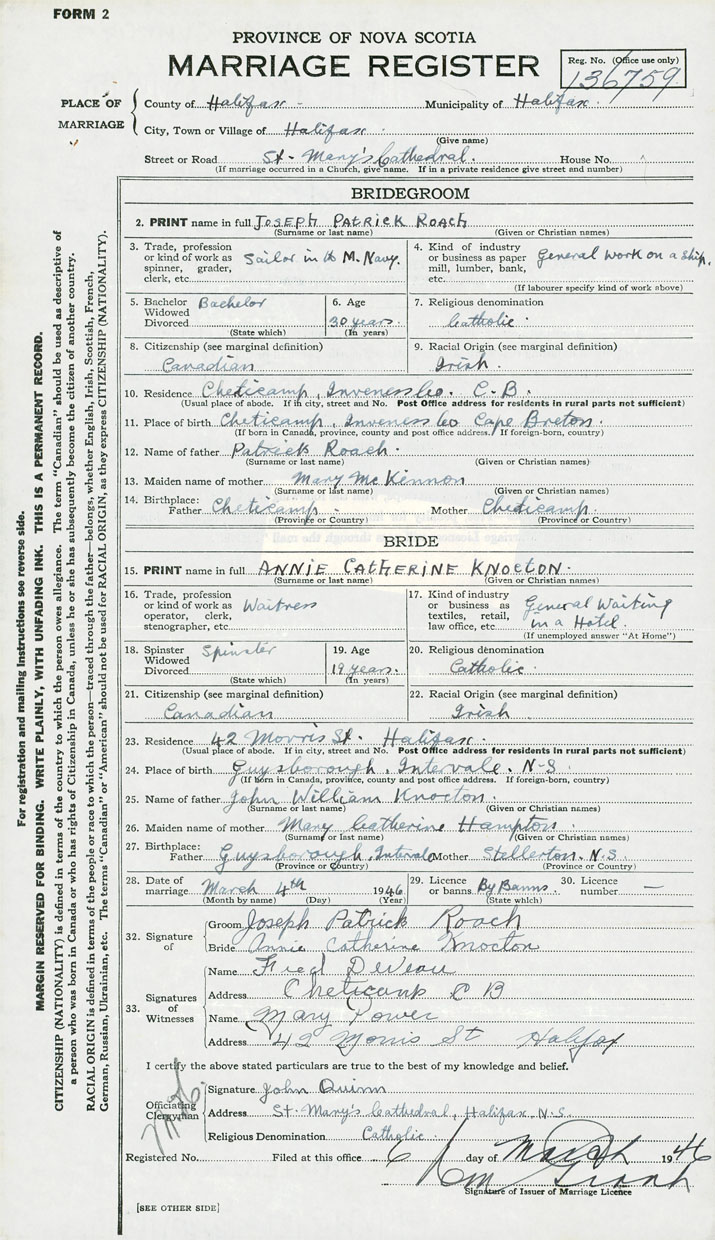 FORM 2
PROVINCE OF NOVA SCOTIA
MARRIAGE REGISTER
Reg. No. (Office use only)
136759
PLACE OF MARRIAGE
County of Halifax - Municipality of Halifax.
City, Town or Village of Halifax.
(Give name)
Street or Road St. Mary's Cathedral. House No.
(If marriage occurred in a Church, give name. If in a private residence give street and number)
BRIDEGROOM
2. PRINT name in full JOSEPH PATRICK ROACH
(Surname or last name) (Given or Christian names)
3. Trade, profession or kind of work as spinner, grader, clerk, etc. Sailor in the M. Navy.
4. Kind of industry or business as paper mill, lumber, bank, etc. General work on a ship.
(If labourer specify kind of work above)
5. Bachelor Widowed Divorced Bachelor
(State which)
6. Age 30 years.
(In years)
7. Religious denomination Catholic.
8. Citizenship (see marginal definition) Canadian
9. Racial Origin (see marginal definition) Irish.
10. Residence Cheticamp, Inverness Co. C-B.
(Usual place of abode. If in city, street and No. Post Office address for residents in rural parts not sufficient)
11. Place of birth Cheticamp, Inverness Co Cape Breton.
(If born in Canada, province, county and post office address. If foreign-born, country)
12. Name of father Patrick Roach.
(Surname or last name) (Given or Christian names)
13. Maiden name of mother Mary McKinnon
(Surname or last name) (Given or Christian names)
14. Birthplace: Father Cheticamp. Mother Cheticamp.
(Province or Country) (Province or Country)
BRIDE
15. PRINT name in full ANNIE CATHERINE KNOCTON.
(Surname or last name) (Given or Christian names)
16. Trade, profession or kind of work as operator, clerk, stenographer, etc. Waitress
17. Kind of industry or business as textiles, retail, law office, etc. General Waiting in a Hotel.
(If unemployed answer "At Home")
18. Spinster Widowed Divorced Spinster
(State which)
19. Age 19 years.
(In years)
20. Religious denomination Catholic.
21. Citizenship (see marginal definition) Canadian
22. Racial Origin (see marginal definition) Irish.
23. Residence 42 Morris St. Halifax.
(Usual place of abode. If in city, street and No. Post Office address for residents in rural parts not sufficient)
24. Place of birth Guysborough, Intervale. N-S
(If born in Canada, province, county and post office address. If foreign-born, country)
25. Name of father John William Knocton.
(Surname or last name) (Given or Christian names)
26. Maiden name of mother Mary Catherine Hampton.
(Surname or last name) (Given or Christian names)
27. Birthplace: Father Guysborough, Intervale Mother Stellerton. N.S.
(Province or Country) (Province or Country)
28. Date of marriage March 4th 1946
(Month by name) (Day) (Year)
29. Licence or banns By Banns.
(State which)
30. Licence number —
32. Signature of
Groom Joseph Patrick Roach
Bride Annie Catherine Knocton
33. Signatures of Witnesses
Name Fred DeVeau
Address Cheticamp C B
Name Mary Power
Address 42 Morris St Halifax
I certify the above stated particulars are true to the best of my knowledge and belief.
Officiating Clergyman
Signature John Quinn
Address St. Mary's Cathedral, Halifax, N.S.
Religious Denomination Catholic.
Registered No. Filed at this office 6 day of March 1946
Signature of Issuer of Marriage Licence
[SEE OTHER SIDE]
For registration and mailing instructions see reverse side.
MARGIN RESERVED FOR BINDING. WRITE PLAINLY, WITH UNFADING INK. THIS IS A PERMANENT RECORD.
CITIZENSHIP (NATIONALITY) is defined in terms of the country to which the person owes allegiance. The term "Canadian" should be used as descriptive of
a person who was born in Canada or who has rights of Citizenship in Canada, unless he or she has subsequently become the citizen of another country.
RACIAL ORIGIN is defined in terms of the people or race to which the person—traced through the father—belongs, whether English, Irish, Scottish, French,
German, Russian, Ukrainian, etc. The terms "Canadian" or "American" should not be used for RACIAL ORIGIN, as they express CITIZENSHIP (NATIONALITY).